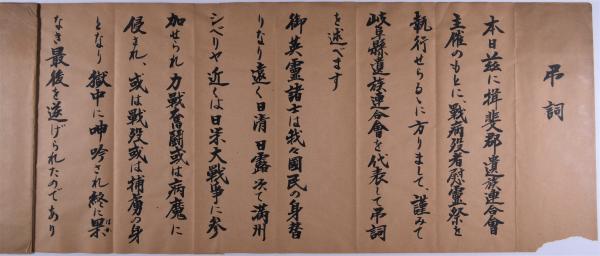 弔詞
本日茲に揖斐郡遺族連合會
主催のもとに、戦病没者慰霊祭を
執行せらるゝに方りまして、謹みて
岐阜縣遺族連合會を代表して弔詞
を述べます
御英霊諸士は我々國民の身替
りなり遠く日清日露次で満州
シベリヤ近くは日米大戦争に参
加せられ力戦奮闘或は病魔に
侵され、或は戦歿或は捕虜の身
となり獄中に呻吟され終に果
なき最後を遂げられたのであり